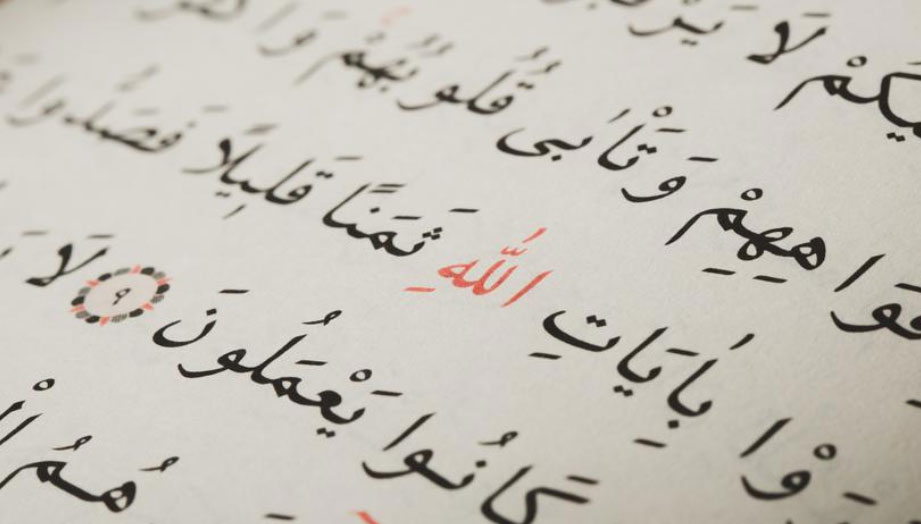 يكُمْ لَا يَرْ
فْوَاهِهِمْ وَتَأْبَى قُلُوبُهُمْ وَأ
وْا بِآيَاتِ اللَّهِ ثَمَنًا قَلِيلًا فَصَدُّوا
كَانُوا يَعْمَلُونَ ٩ لَا
هُمُ الْ